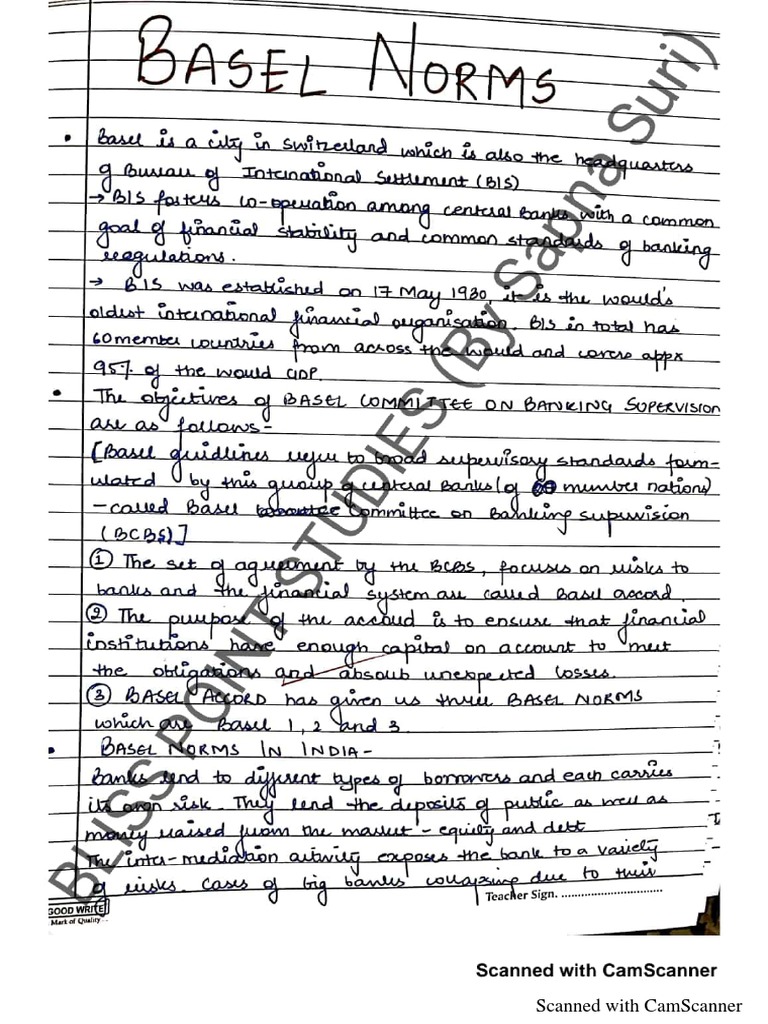 BASEL NORMS
• Basel is a city in Switzerland which is also the headquarters
of Bureau of International Settlement (BIS)
→ BIS fosters co-operation among central Banks with a common
goal of financial stability and common standards of banking
reegulations.
→ BIS was established on 17 May 1930, it is the would's
oldest international financial organisation. BIS in total has
60 member countries from across the would and covers appx
95% of the would GDP.
• The objectives of BASEL COMMITTEE ON BANKING SUPERVISION
are as follows -
[Basel guidlines refer to broad supervisory standards form-
ulated by this group of central Banks (of member nations)
- called Basel Committee on Banking supervision
(BCBS)]
① The set of agreement by the BCBS, focuses on risks to
banks and the financial system are called Basel accord.
② The purpose of the accord is to ensure that financial
institutions have enough capital on account to meet
the obligations and absorb unexpected losses.
③ BASEL ACCORD has given us three BASEL NORMS
which are Basel 1, 2 and 3
• BASEL NORMS IN INDIA -
Banks lend to different types of borrowers and each carries
its own risk. They lend the deposits of public as well as
money raised from the market - equity and debt
The inter-mediation activity exposes the bank to a variety
of risks. Cases of big banks collapsing due to their
Teacher Sign. ................................
GOOD WRITE
Mark of Quality
BLISS POINT STUDIES (By Sapna Suri)
Scanned with CamScanner
Scanned with CamScanner